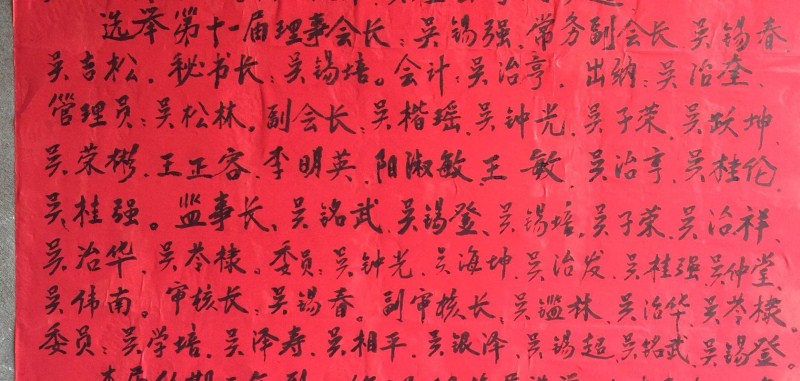 选举第十一届理事会长：吴锡强，常务副会长吴锡春、
吴吉松，秘书长：吴锡培。会计：吴治亨，出纳：吴治奎，
管理员：吴松林，副会长：吴楷瑶、吴钟光、吴子荣、吴跃坤、
吴荣彬、王正容、李明英、阳淑敏、王敏、吴治亨、吴桂伦、
吴桂强。监事长：吴铭武、吴锡登、吴锡培、吴子荣、吴治祥、
吴治华、吴苓棣。委员：吴钟光、吴海坤、吴治发、吴桂强、吴仲堂、
吴伟南。审核长：吴锡春。副审核长、吴鑑林、吴治华、吴苓棣。
委员：吴学培、吴泽寿、吴相平、吴银泽、吴锡超、吴铭武、吴锡登。